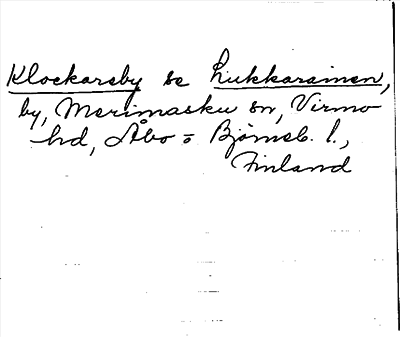 Klockarsby se Lukkarainen,
by, Merimasku sn, Virmo
hd, Åbo = Björneb. l.,
Finland